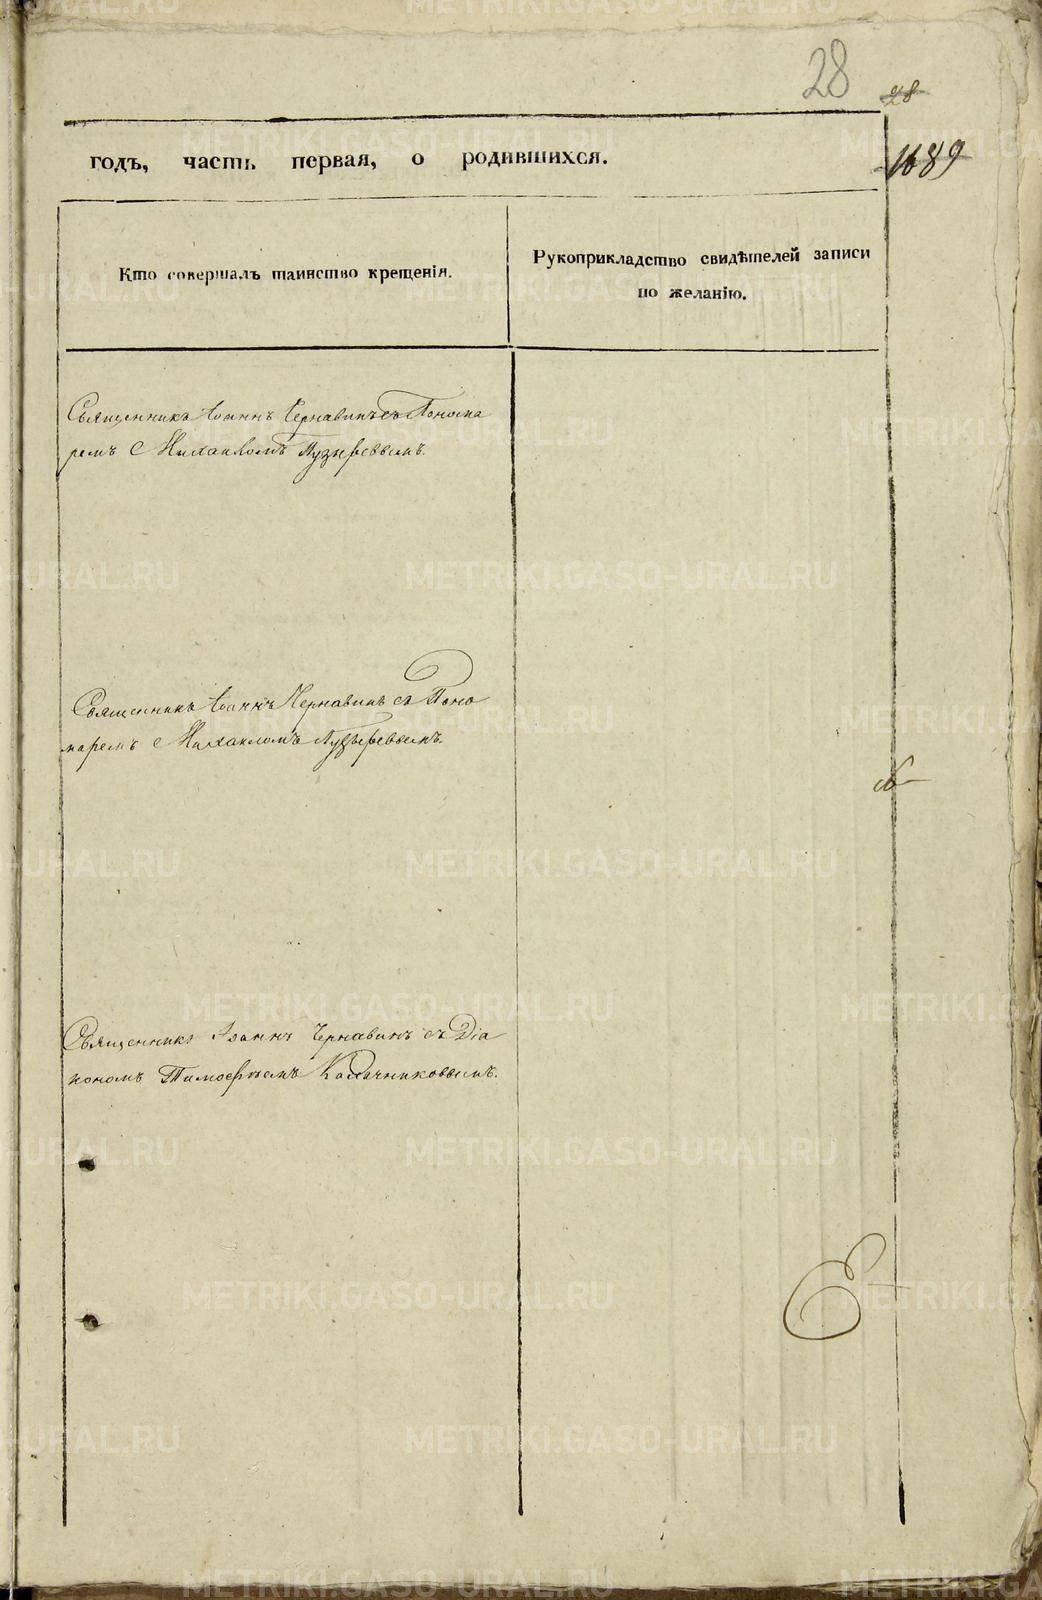 28
28
1689
годъ, часть первая, о родившихся.
Кто совершалъ таинство крещенія.
Рукоприкладство свидѣтелей записи
по желанію.
Священникъ Іоаннъ Чернавинъ съ Понома
ремъ Михаиломъ Пузыревымъ.
Священникъ Іоаннъ Чернавинъ съ Поно
маремъ Михаиломъ Пузыревымъ.
Священникъ Іоаннъ Чернавинъ съ Діа
кономъ Тимофѣемъ Калачниковымъ.
METRIKI.GASO-URAL.RU